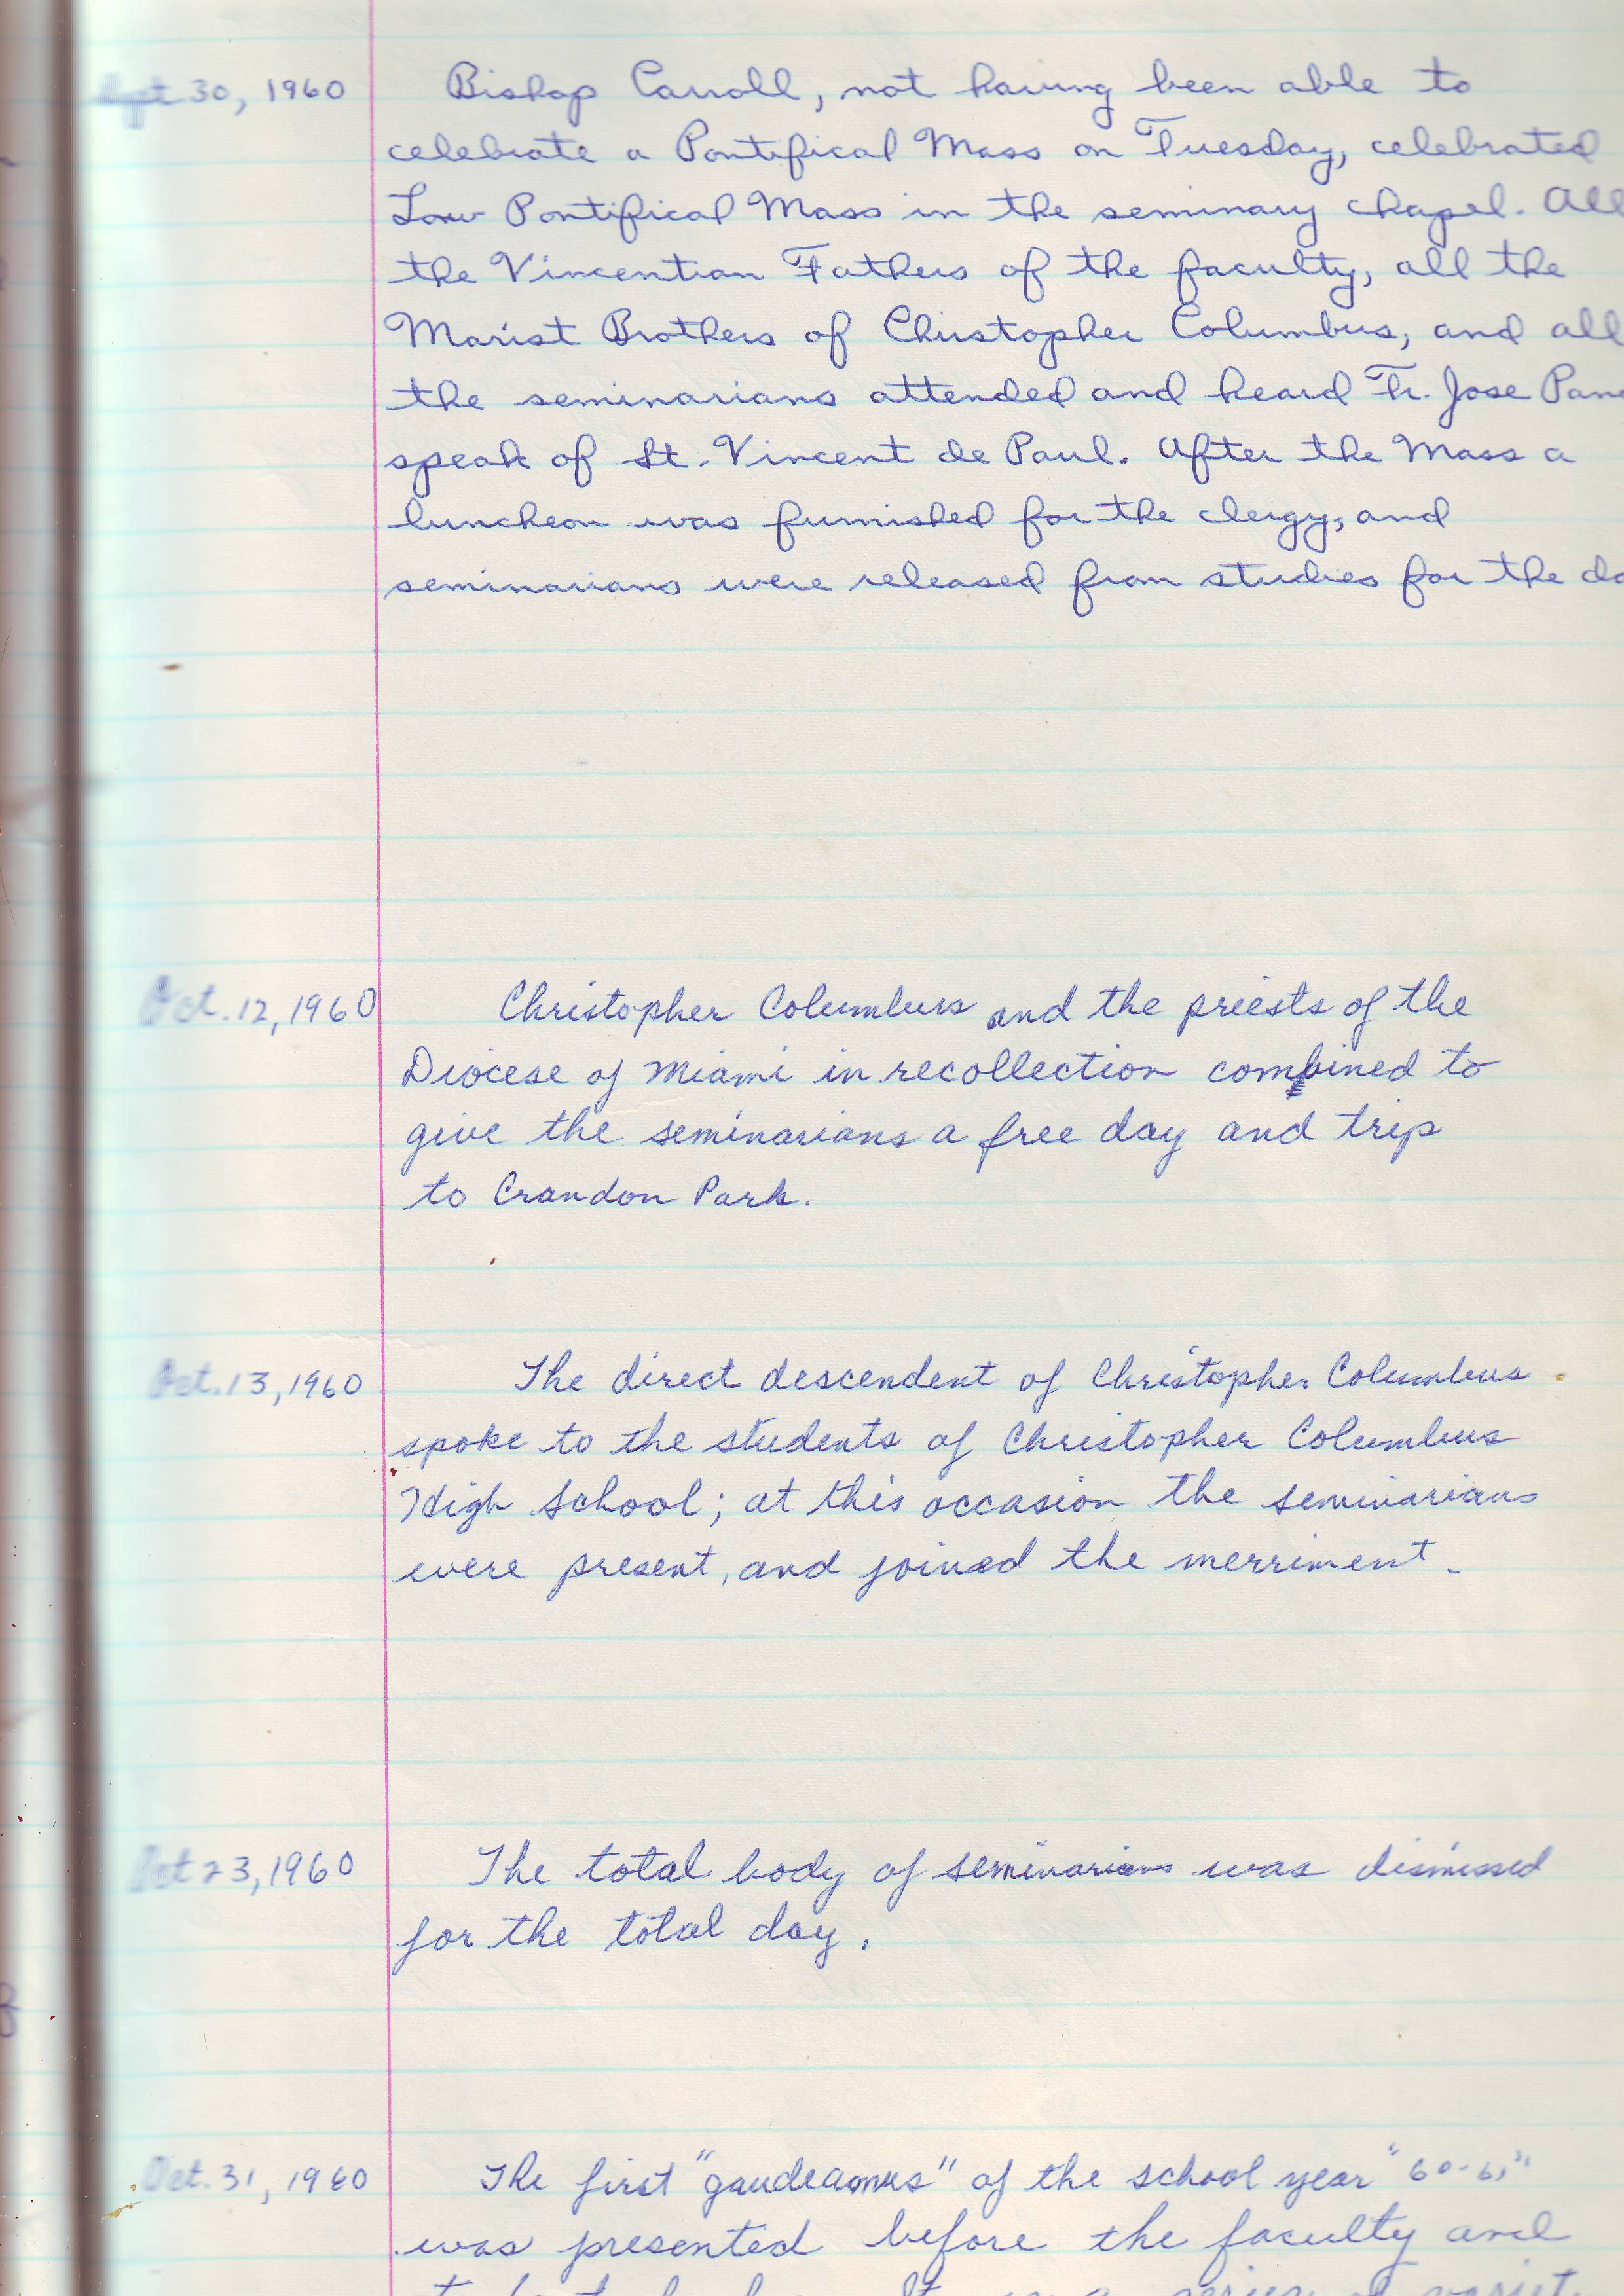 Sept 30, 1960 Bishop Carroll, not having been able to
celebrate a Pontifical Mass on Tuesday, celebrated
Low Pontifical Mass in the seminary chapel. All
the Vincentian Fathers of the faculty, all the
Marist Brothers of Christopher Columbus, and all
the seminarians attended and heard Fr. Jose Pan
speak of St. Vincent de Paul. After the Mass a
luncheon was furnished for the clergy, and
seminarians were released from studies for the da
Oct. 12, 1960 Christopher Columbus and the priests of the
Diocese of Miami in recollection combined to
give the seminarians a free day and trip
to Crandon Park.
Oct. 13, 1960 The direct descendent of Christopher Columbus
spoke to the students of Christopher Columbus
High School; at this occasion the seminarians
were present, and joined the merriment.
Oct 23, 1960 The total body of seminarians was dismissed
for the total day.
Oct. 31, 1960 The first "gaudeamus" of the school year "60-61"
was presented before the faculty and